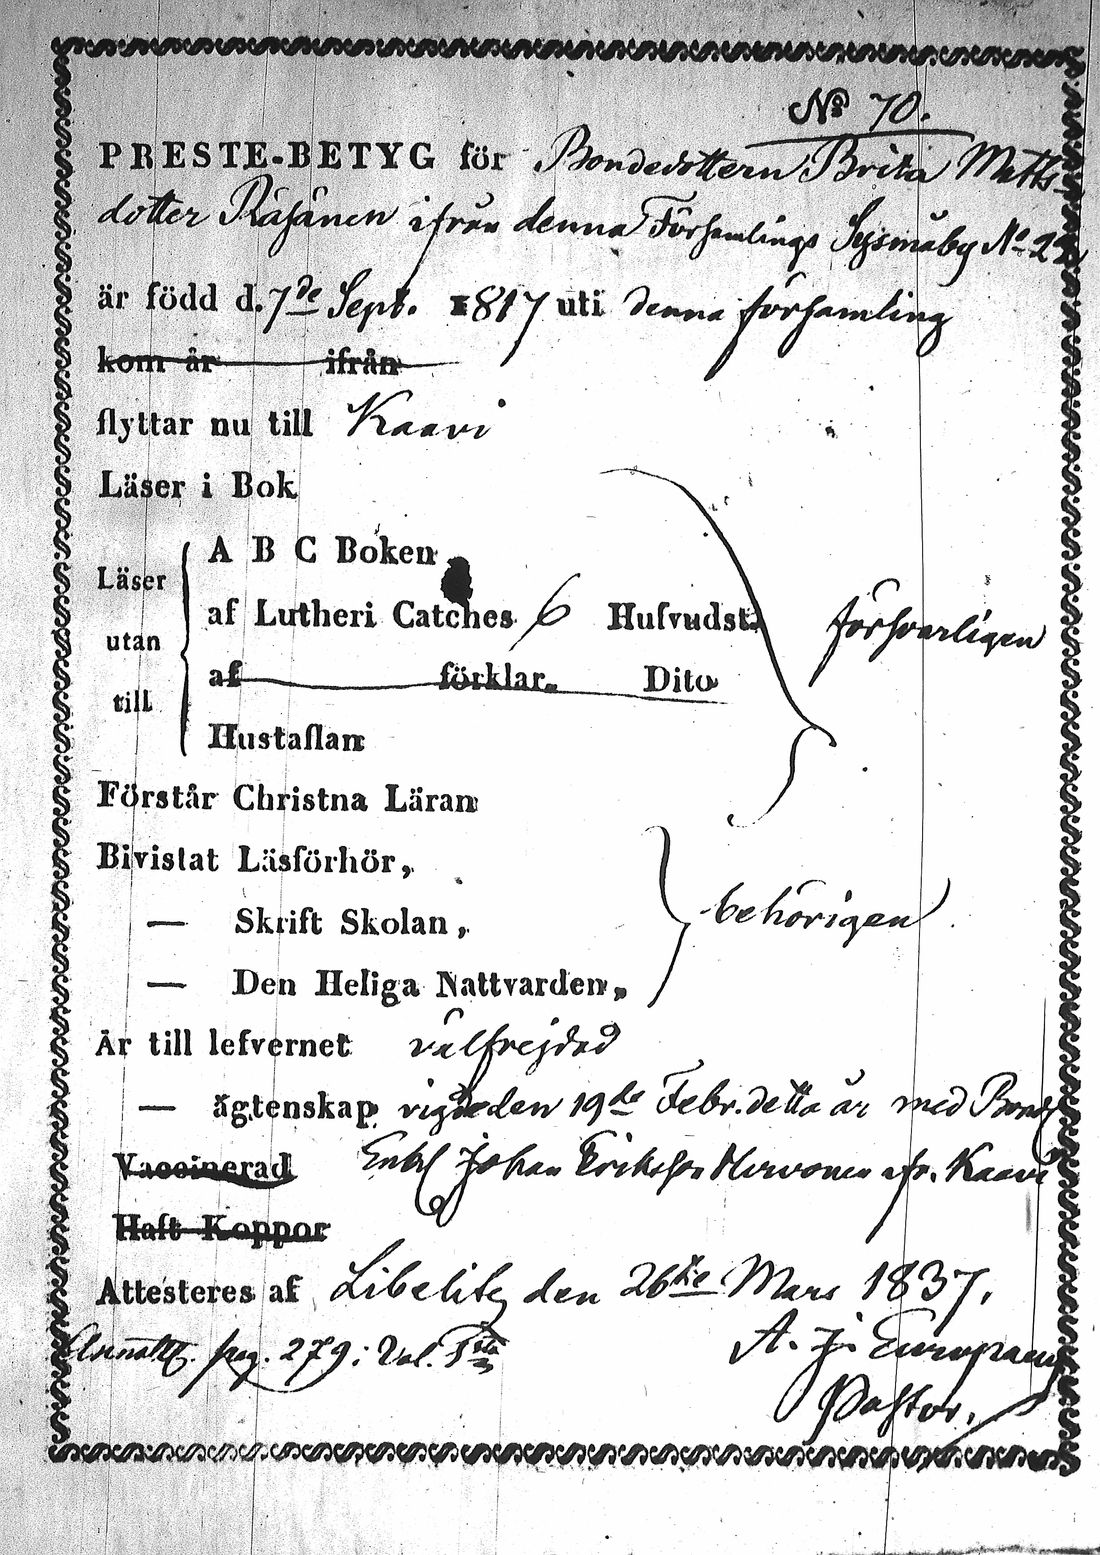 № 70.
PRESTE-BETYG för Bondedottern Brita Matts-
dotter Räsänen ifrån denna Församlings Sysmäby № 22
är född d. 7de Sept. 1817 uti denna församling
kom år ifrån
flyttar nu till Kaavi
Läser i Bok
Läser utan till
A B C Boken
af Lutheri Catches 6 Hufvudst.
af förklar. Dito
Hustaflan
försvarligen
Förstår Christna Läran
Bivistat Läsförhör,
— Skrift Skolan,
— Den Heliga Nattvarden,
behörigen
Är till lefvernet välfrejdad
— ägtenskap vigde den 19de Febr. detta år med Bond
Vaccinerad Johan Eriksson Hirvonen ifr. Kaavi
Haft Koppor
Attesteres af Libelitz den 26te Mars 1837.
pag. 279: Vol. 1sta
A. J. Europaeus
Pastor.